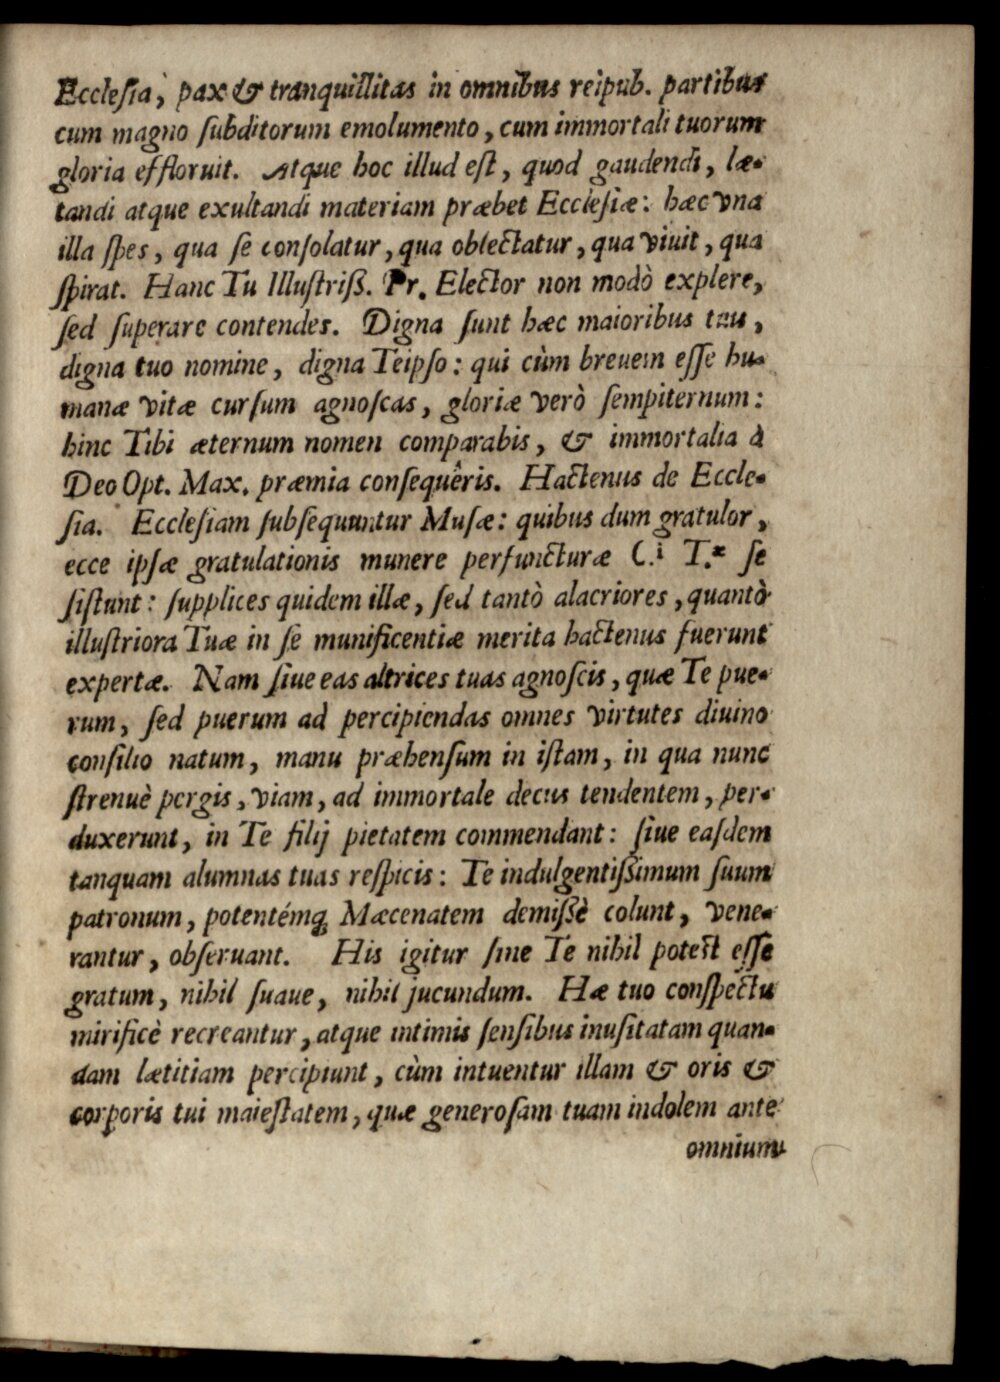 Ecclesia, pax & tranquillitas in omnibus reipub. partibus
cum magno ſubditorum emolumento, cum immortali tuorum
gloria effloruit. Atque hoc illud eſt, quod gaudendi, læ-
tandi atque exultandi materiam præbet Eccleſiæ: hæc vna
illa ſpes, qua ſe conſolatur, qua oblectatur, qua viuit, qua
ſpirat. Hanc Tu Illuſtriß. Pr. Elector non modò explere,
ſed ſuperare contendes. Digna ſunt hæc maioribus tuis,
digna tuo nomine, digna Teipſo: qui cùm breuem eſſe hu-
manæ vitæ curſum agnoſcas, gloriæ verò ſempiternum:
hinc Tibi æternum nomen comparabis, & immortalia à
Deo Opt. Max. præmia conſequêris. Hactenus de Eccle-
ſia. Eccleſiam ſubſequuntur Muſæ: quibus dum gratulor,
ecce ipſæ gratulationis munere perfuncturæ C.i T.æ ſe
ſiſtunt: ſupplices quidem illæ, ſed tantò alacriores, quantò
illuſtriora Tuæ in ſe munificentiæ merita hactenus fuerunt
expertæ. Nam ſiue eas altrices tuas agnoſcis, quæ Te pue-
rum, ſed puerum ad percipiendas omnes virtutes diuino
conſilio natum, manu præhenſum in iſtam, in qua nunc
ſtrenuè pergis, viam, ad immortale decus tendentem, per-
duxerunt, in Te filij pietatem commendant: ſiue eaſdem
tanquam alumnas tuas reſpicis: Te indulgentißimum ſuum
patronum, potentémq; Mæcenatem demißè colunt, vene-
rantur, obſeruant. His igitur ſine Te nihil poteſt eſſe
gratum, nihil ſuaue, nihil jucundum. Hæ tuo conſpectu
mirificè recreantur, atque intimis ſenſibus inuſitatam quan-
dam lætitiam percipiunt, cùm intuentur illam & oris &
corporis tui maieſtatem, quæ generoſam tuam indolem ante
omnium